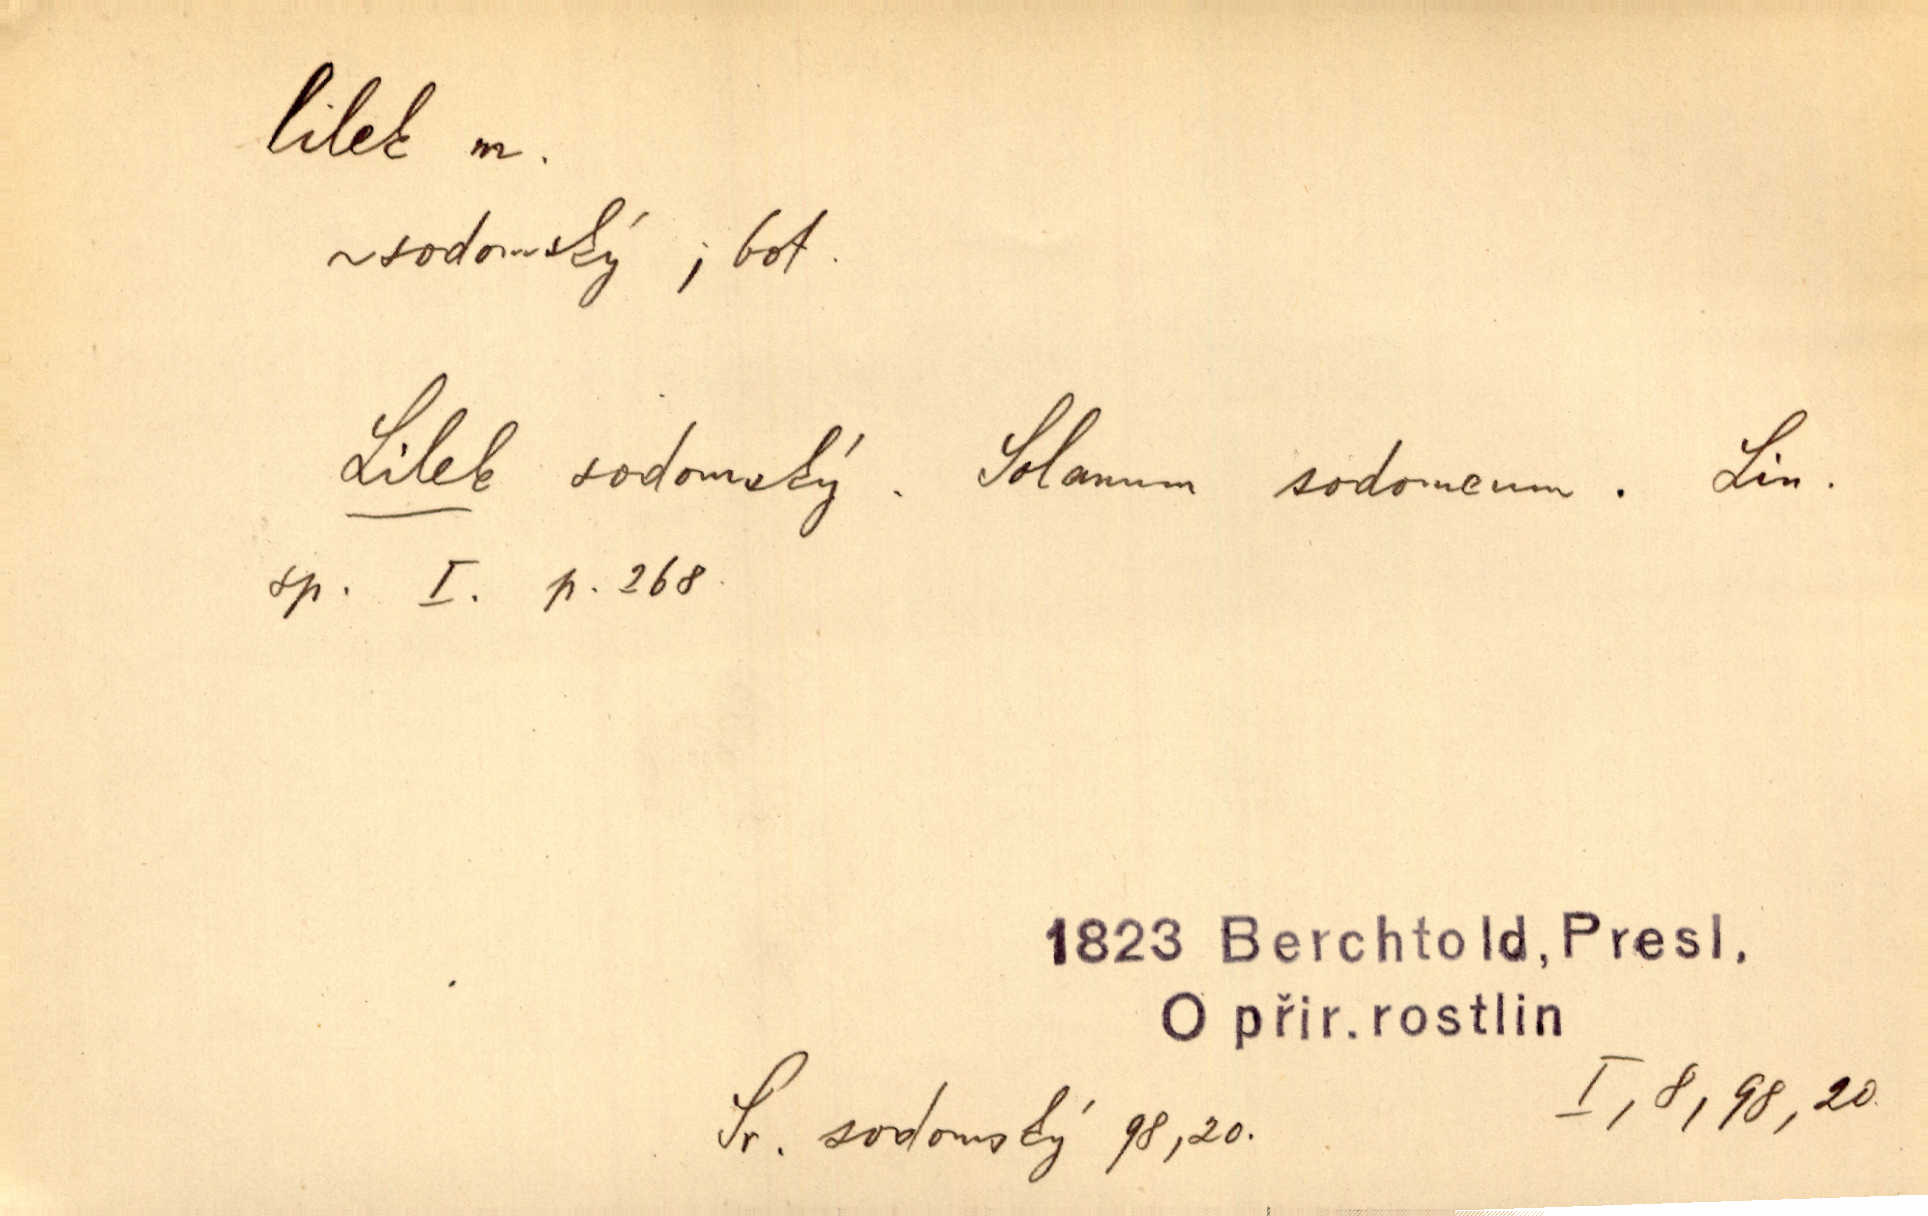 lilek m.
~sodomský ; bot.
Lilek sodomský. Solanum sodomeum. Lin.
sp. I. p. 268.
1823 Berchtold, Presl.
O přir. rostlin
I, 8, 98, 20.
Sr. sodomský 98, 20.